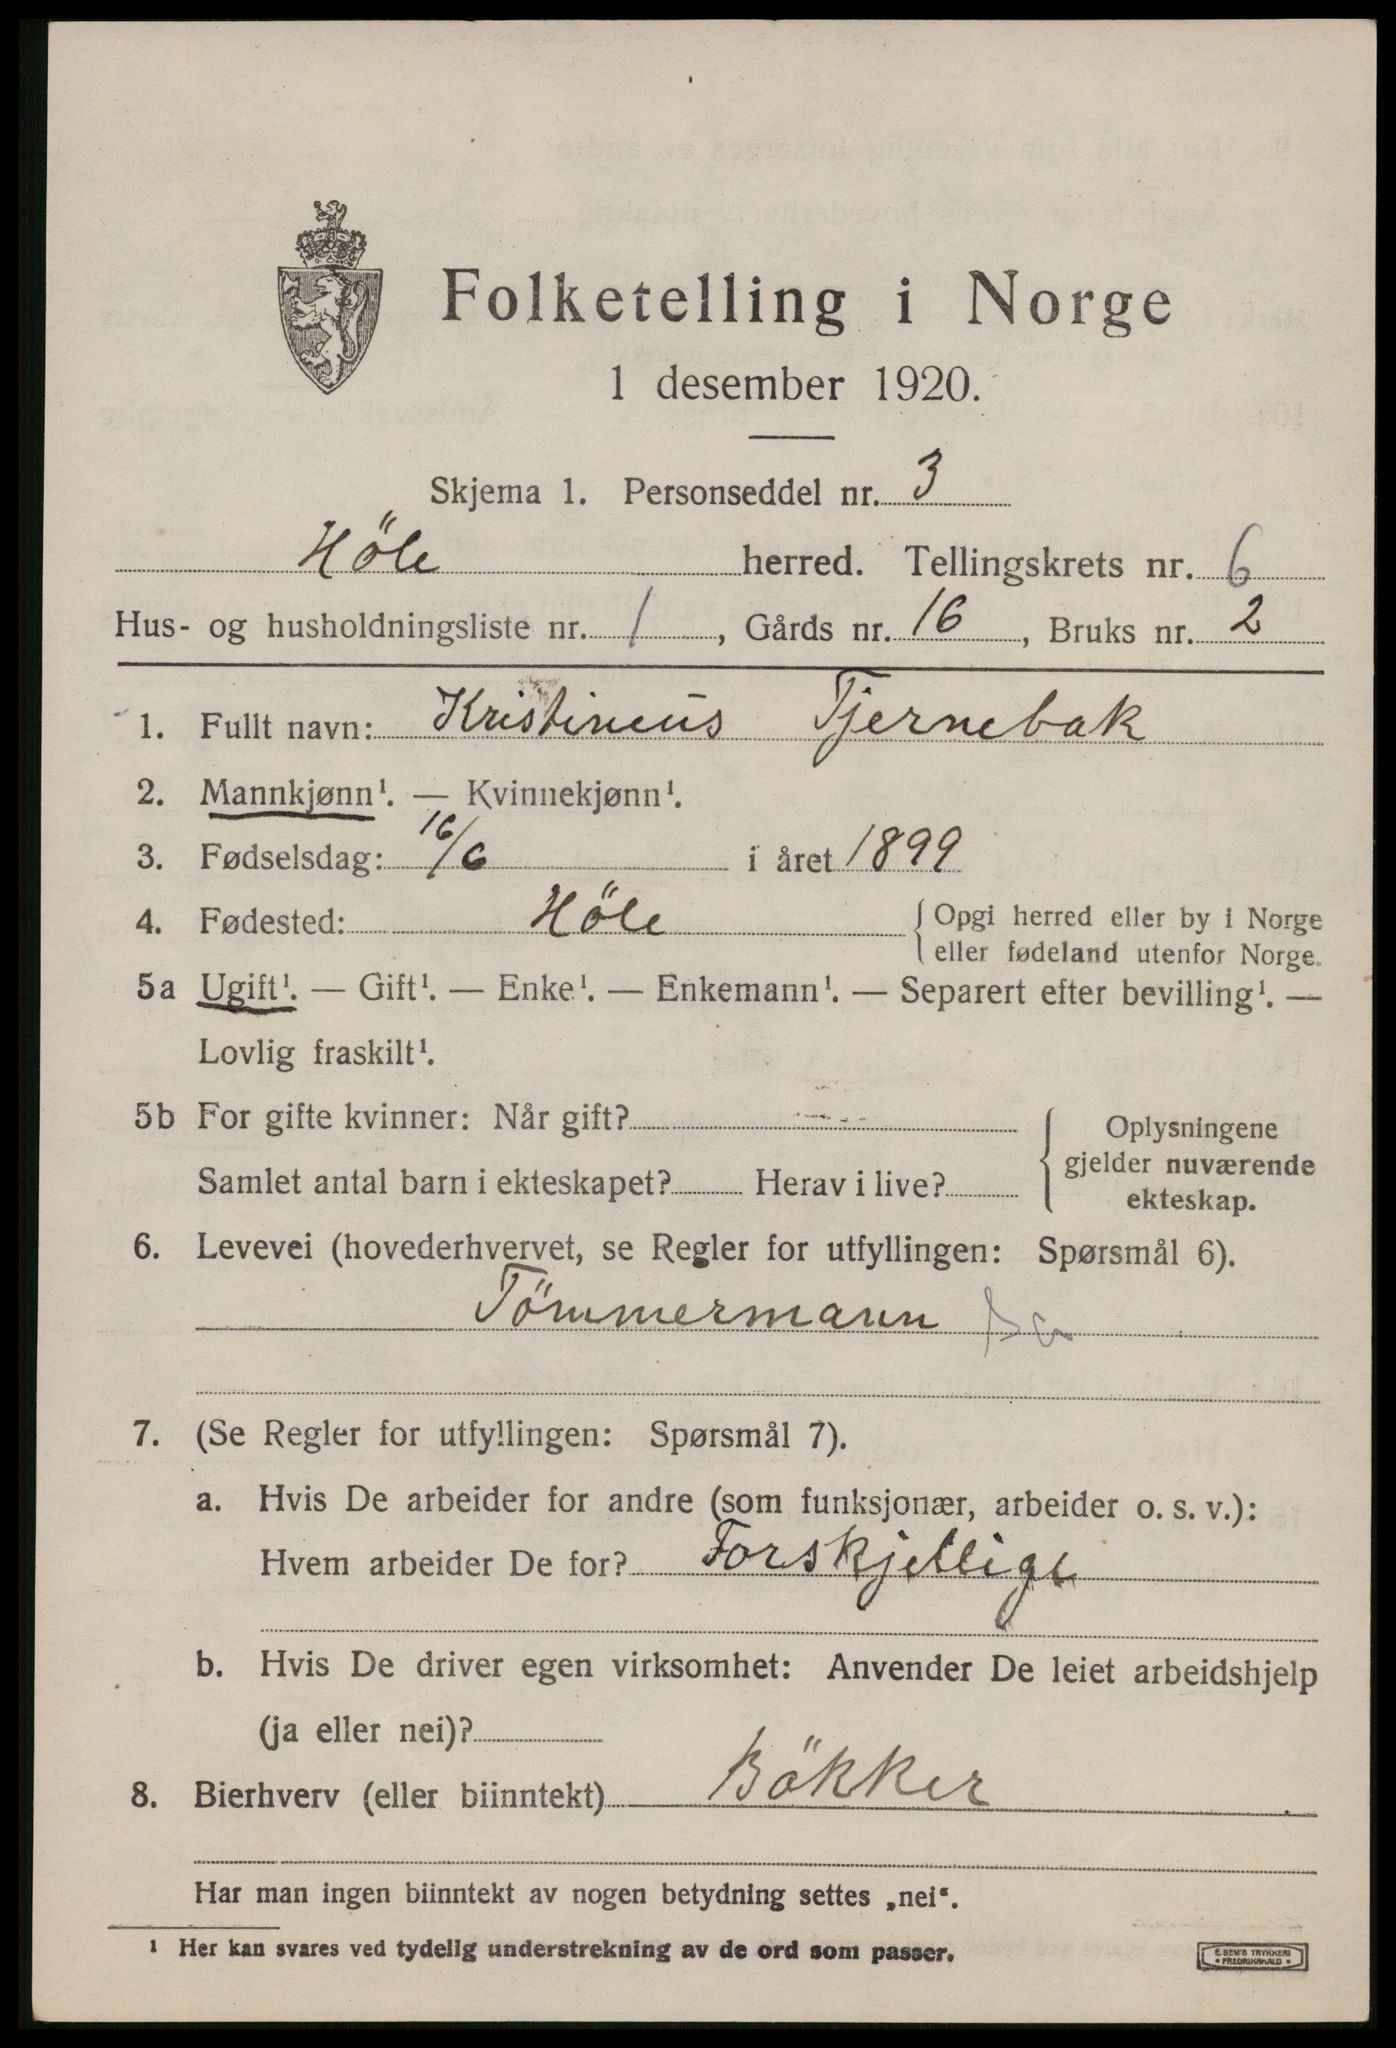 Folketelling i Norge
1 desember 1920.
Skjema 1. Personseddel nr. 3
Höle herred. Tellingskrets nr. 6
Hus- og husholdningsliste nr. 1, Gårds nr. 16, Bruks nr. 2
1. Fullt navn: Kristineus Tjernebak
2. Mannkjønn¹. — Kvinnekjønn¹.
3. Fødselsdag: 16/6 i året 1899
4. Fødested: Höle { Opgi herred eller by i Norge
eller fødeland utenfor Norge.
5a Ugift¹. — Gift¹. — Enke¹. — Enkemann¹. — Separert efter bevilling¹. —
Lovlig fraskilt¹.
5b For gifte kvinner: Når gift?
Samlet antal barn i ekteskapet? Herav i live?
Oplysningene
gjelder nuværende
ekteskap.
6. Levevei (hovederhvervet, se Regler for utfyllingen: Spørsmål 6).
Tömmermann
7. (Se Regler for utfyllingen: Spørsmål 7).
a. Hvis De arbeider for andre (som funksjonær, arbeider o. s. v.):
Hvem arbeider De for? Forskjellige
b. Hvis De driver egen virksomhet: Anvender De leiet arbeidshjelp
(ja eller nei)?
8. Bierhverv (eller biinntekt) Bökker
Har man ingen biinntekt av nogen betydning settes „nei“.
¹ Her kan svares ved tydelig understrekning av de ord som passer.
E. SEM'S TRYKKERI
* FREDRIKSHALD *